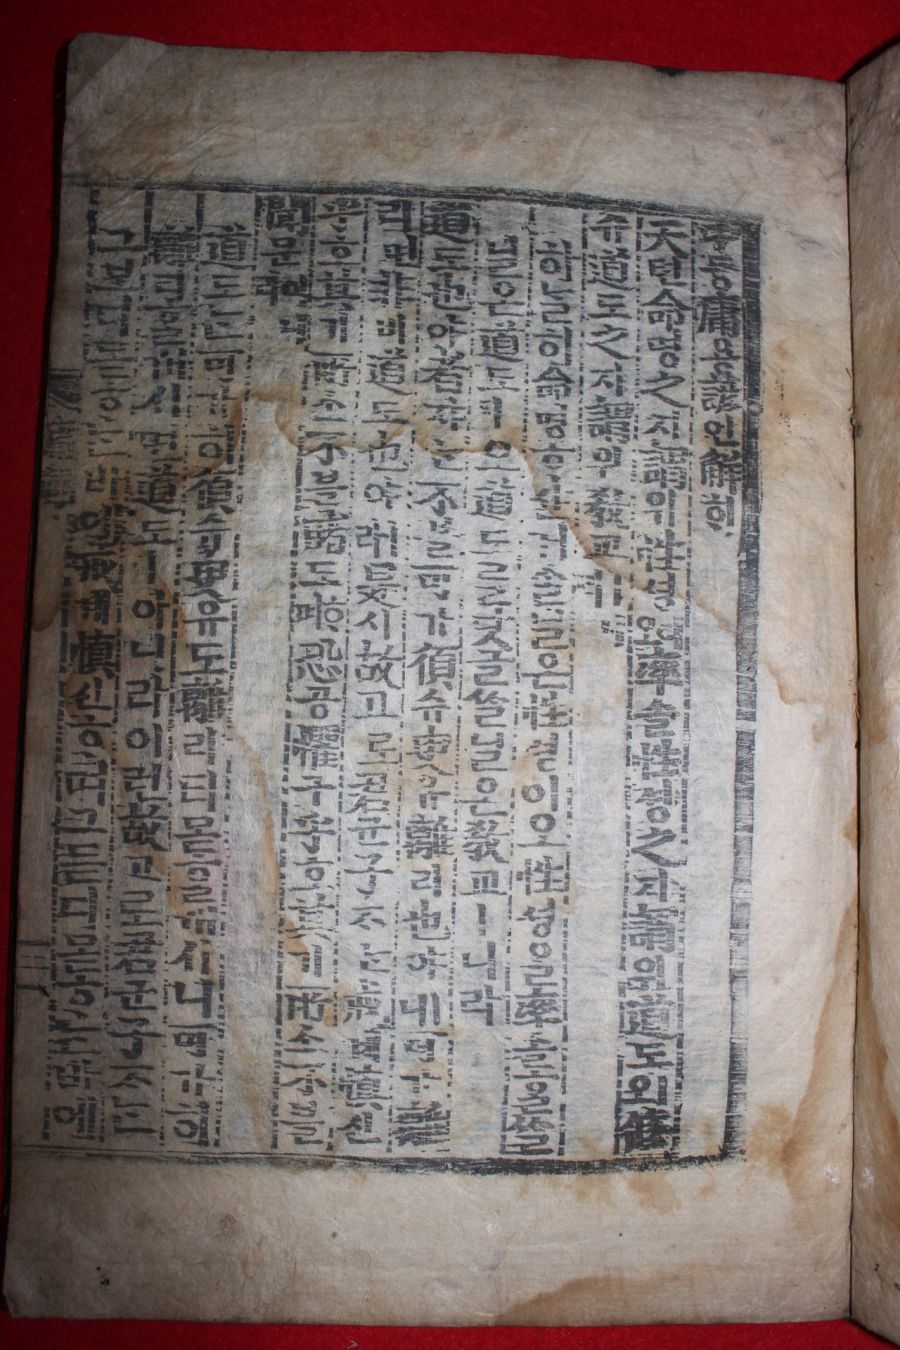 中듕庸용諺언解ᄒᆡ
天텬命명之지謂위性셩이오率솔性셩之지謂위道도ㅣ오脩
슈道도之지謂위敎교ㅣ니라
하ᄂᆞᆯ이命명ᄒᆞ샨거슬닐온性셩이오性셩을率솔홈을
닐온道도ㅣ오道도ᄅᆞᆯ닐온敎교ㅣ니라
道도也야者쟈ᄂᆞᆫ不블可가須슈臾유離리也야ㅣ니可가離
리면非비道도也야ㅣ라是시故고로君군子ᄌᆞᄂᆞᆫ戒계愼신
乎호其기所소不블睹도ᄒᆞ며恐공懼구乎호其기所소不블
聞문이니라
道도ᄂᆞᆫ可가히須슈臾유도離리티몯ᄒᆞᆯ꺼시니可가히
離리ᄒᆞᆯ꺼시면道도ㅣ아니라이런故고로君군子ᄌᆞᄂᆞᆫ
그보디몯ᄒᆞᄂᆞᆫ바애戒계愼신ᄒᆞ며그듣디몯ᄒᆞᄂᆞᆫ바